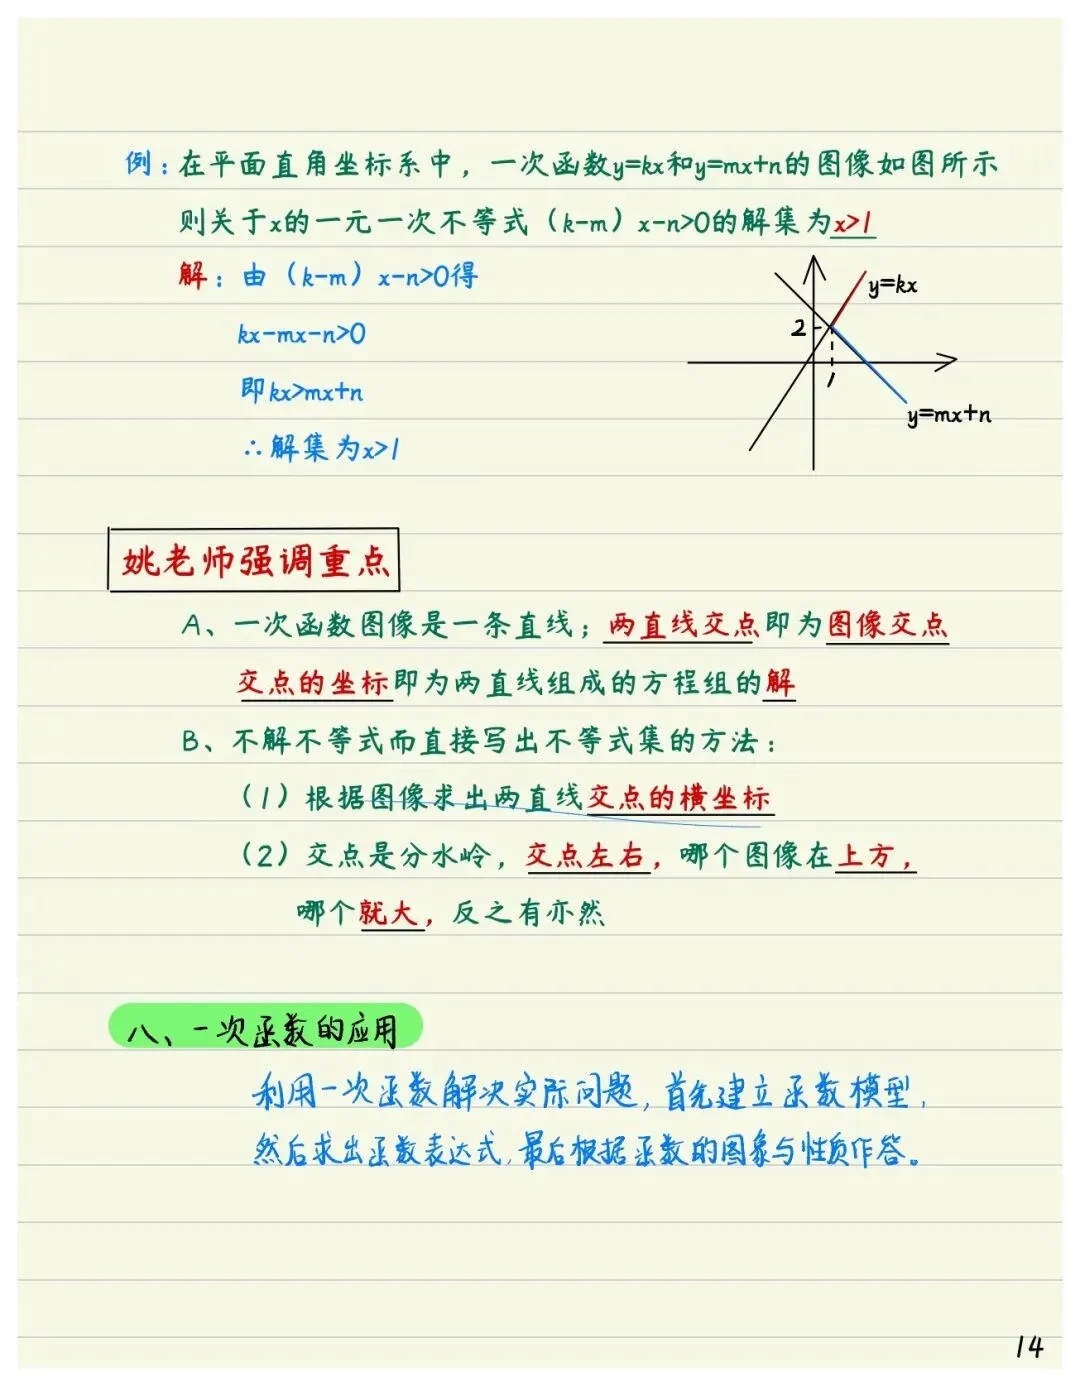 例：在平面直角坐标系中，一次函数y=kx和y=mx+n的图像如图所示
则关于x的一元一次不等式（k-m）x-n>0的解集为x>1
解：由（k-m）x-n>0得
kx-mx-n>0
即kx>mx+n
∴解集为x>1
y=kx
2
1
y=mx+n
姚老师强调重点
A、一次函数图像是一条直线；两直线交点即为图像交点
交点的坐标即为两直线组成的方程组的解
B、不解不等式而直接写出不等式集的方法：
（1）根据图像求出两直线交点的横坐标
（2）交点是分水岭，交点左右，哪个图像在上方，
哪个就大，反之有亦然
八、一次函数的应用
利用一次函数解决实际问题，首先建立函数模型，
然后求出函数表达式，最后根据函数的图象与性质作答。
14